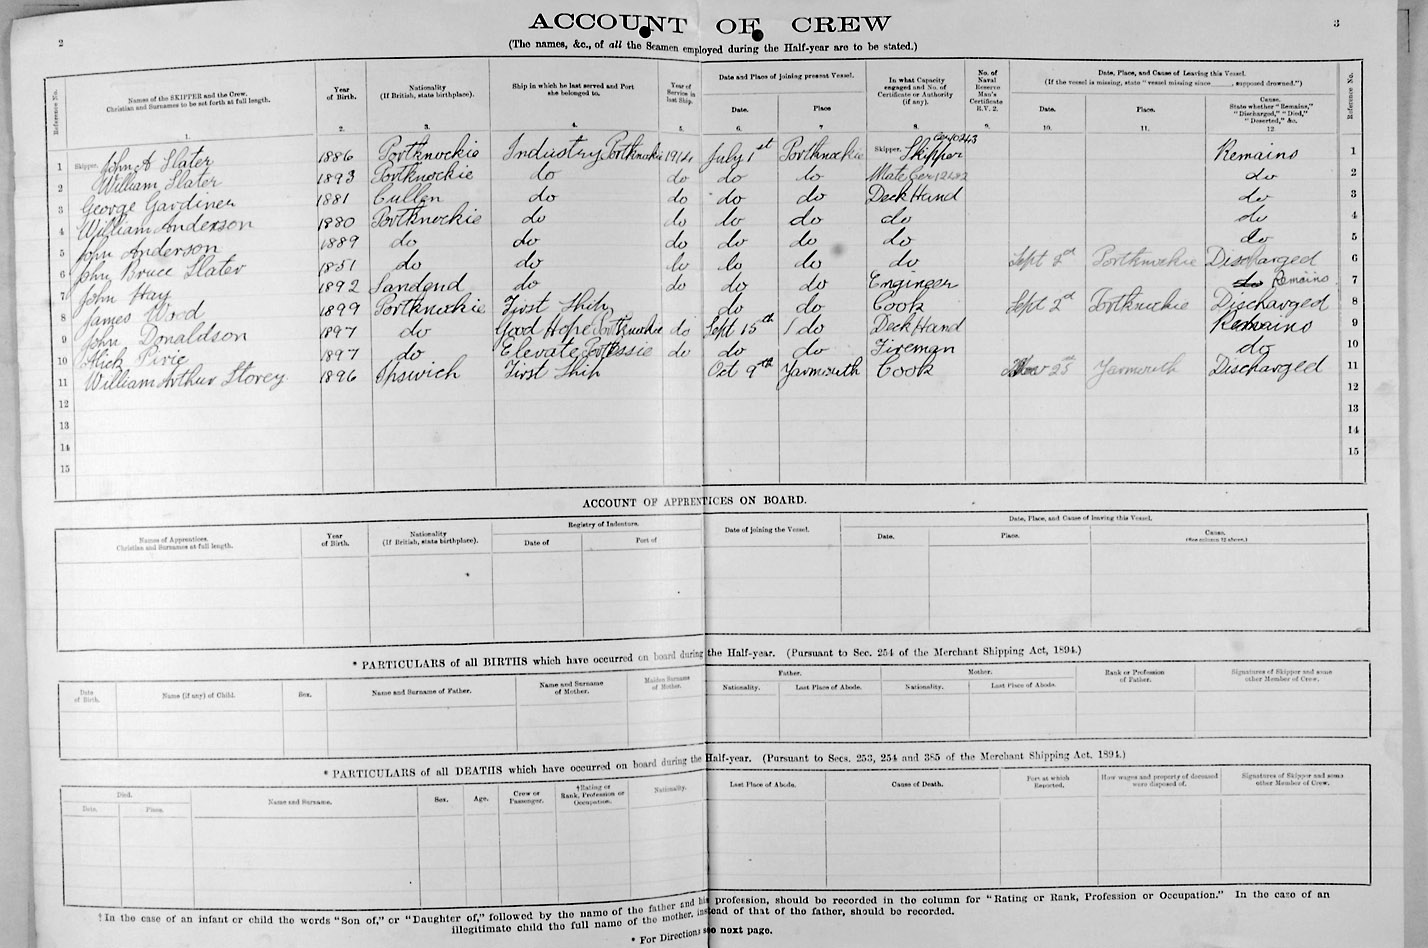 2
ACCOUNT OF CREW
3
(The names, &c., of all the Seamen employed during the Half-year are to be stated.)
Reference No. | Names of the SKIPPER and the Crew. Christian and Surnames to be set forth at full length. 1. | Year of Birth. 2. | Nationality (If British, state birthplace). 3. | Ship in which he last served and Port she belonged to. 4. | Year of Service in last Ship. 5. | Date and Place of joining present Vessel. Date. 6. | Place 7. | In what Capacity engaged and No. of Certificate or Authority (if any). 8. | No. of Naval Reserve Man's Certificate R.V. 2. 9. | Date, Place, and Cause of Leaving this Vessel. (If the vessel is missing, state "vessel missing since____, supposed drowned.") Date. 10. | Place. 11. | Cause. State whether "Remains," "Discharged," "Died," "Deserted," &c. 12 | Reference No.
1 Skipper. John A Slater 1886 Portknockie Industry Portknockie 1914 July 1st Portknockie Skipper. Skipper Remains 1
2 William Slater 1893 Portknockie do do do do Mate do 2
3 George Gardiner 1881 Cullen do do do do Deck Hand do 3
4 William Anderson 1880 Portknockie do do do do do do 4
5 John Anderson 1889 do do do do do do do 5
6 John Bruce Slater 1851 do do do do do do Sept 2nd Portknockie Discharged 6
7 John Hay 1892 Sandend do do do do Engineer do Remains 7
8 James Wood 1899 Portknockie First Ship do do Cook Sept 2nd Portknockie Discharged 8
9 John Donaldson 1897 do Good Hope Portknockie do Sept 15th do Deck Hand Remains 9
10 Alick Pirie 1897 do Elevate do do do Fireman do 10
11 William Arthur Storey 1896 Ipswich First Ship Oct 9th Yarmouth Cook Yarmouth Discharged 11
12 12
13 13
14 14
15 15
ACCOUNT OF APPRENTICES ON BOARD.
Names of Apprentices. Christian and Surnames at full length. | Year of Birth. | Nationality (If British, state birthplace). | Registry of Indenture. Date of | Port of | Date of joining the Vessel. | Date, Place, and Cause of leaving this Vessel. Date. | Place. | Cause. (See column 12 above.)
* PARTICULARS of all BIRTHS which have occurred on board during the Half-year. (Pursuant to Sec. 254 of the Merchant Shipping Act, 1894.)
Date of Birth. | Name (if any) of Child. | Sex. | Name and Surname of Father. | Name and Surname of Mother. | Maiden Surname of Mother. | Father. Nationality. | Last Place of Abode. | Mother. Nationality. | Last Place of Abode. | Rank or Profession of Father. | Signatures of Skipper and some other Member of Crew.
* PARTICULARS of all DEATHS which have occurred on board during the Half-year. (Pursuant to Secs. 253, 254 and 385 of the Merchant Shipping Act, 1894.)
Died. Date. | Place. | Name and Surname. | Sex. | Age. | Crew or Passenger. | †Rating or Rank, Profession or Occupation. | Nationality. | Last Place of Abode. | Cause of Death. | Port at which Reported. | How wages and property of deceased were disposed of. | Signatures of Skipper and some other Member of Crew.
† In the case of an infant or child the words "Son of," or "Daughter of," followed by the name of the father and his profession, should be recorded in the column for "Rating or Rank, Profession or Occupation." In the case of an
illegitimate child the full name of the mother, instead of that of the father, should be recorded.
* For Directions see next page.